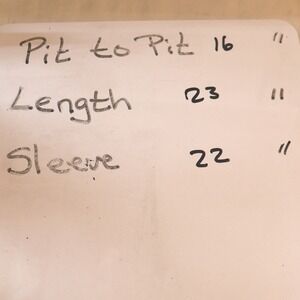 Pit to Pit 16 "
Length 23 "
Sleeve 22 "